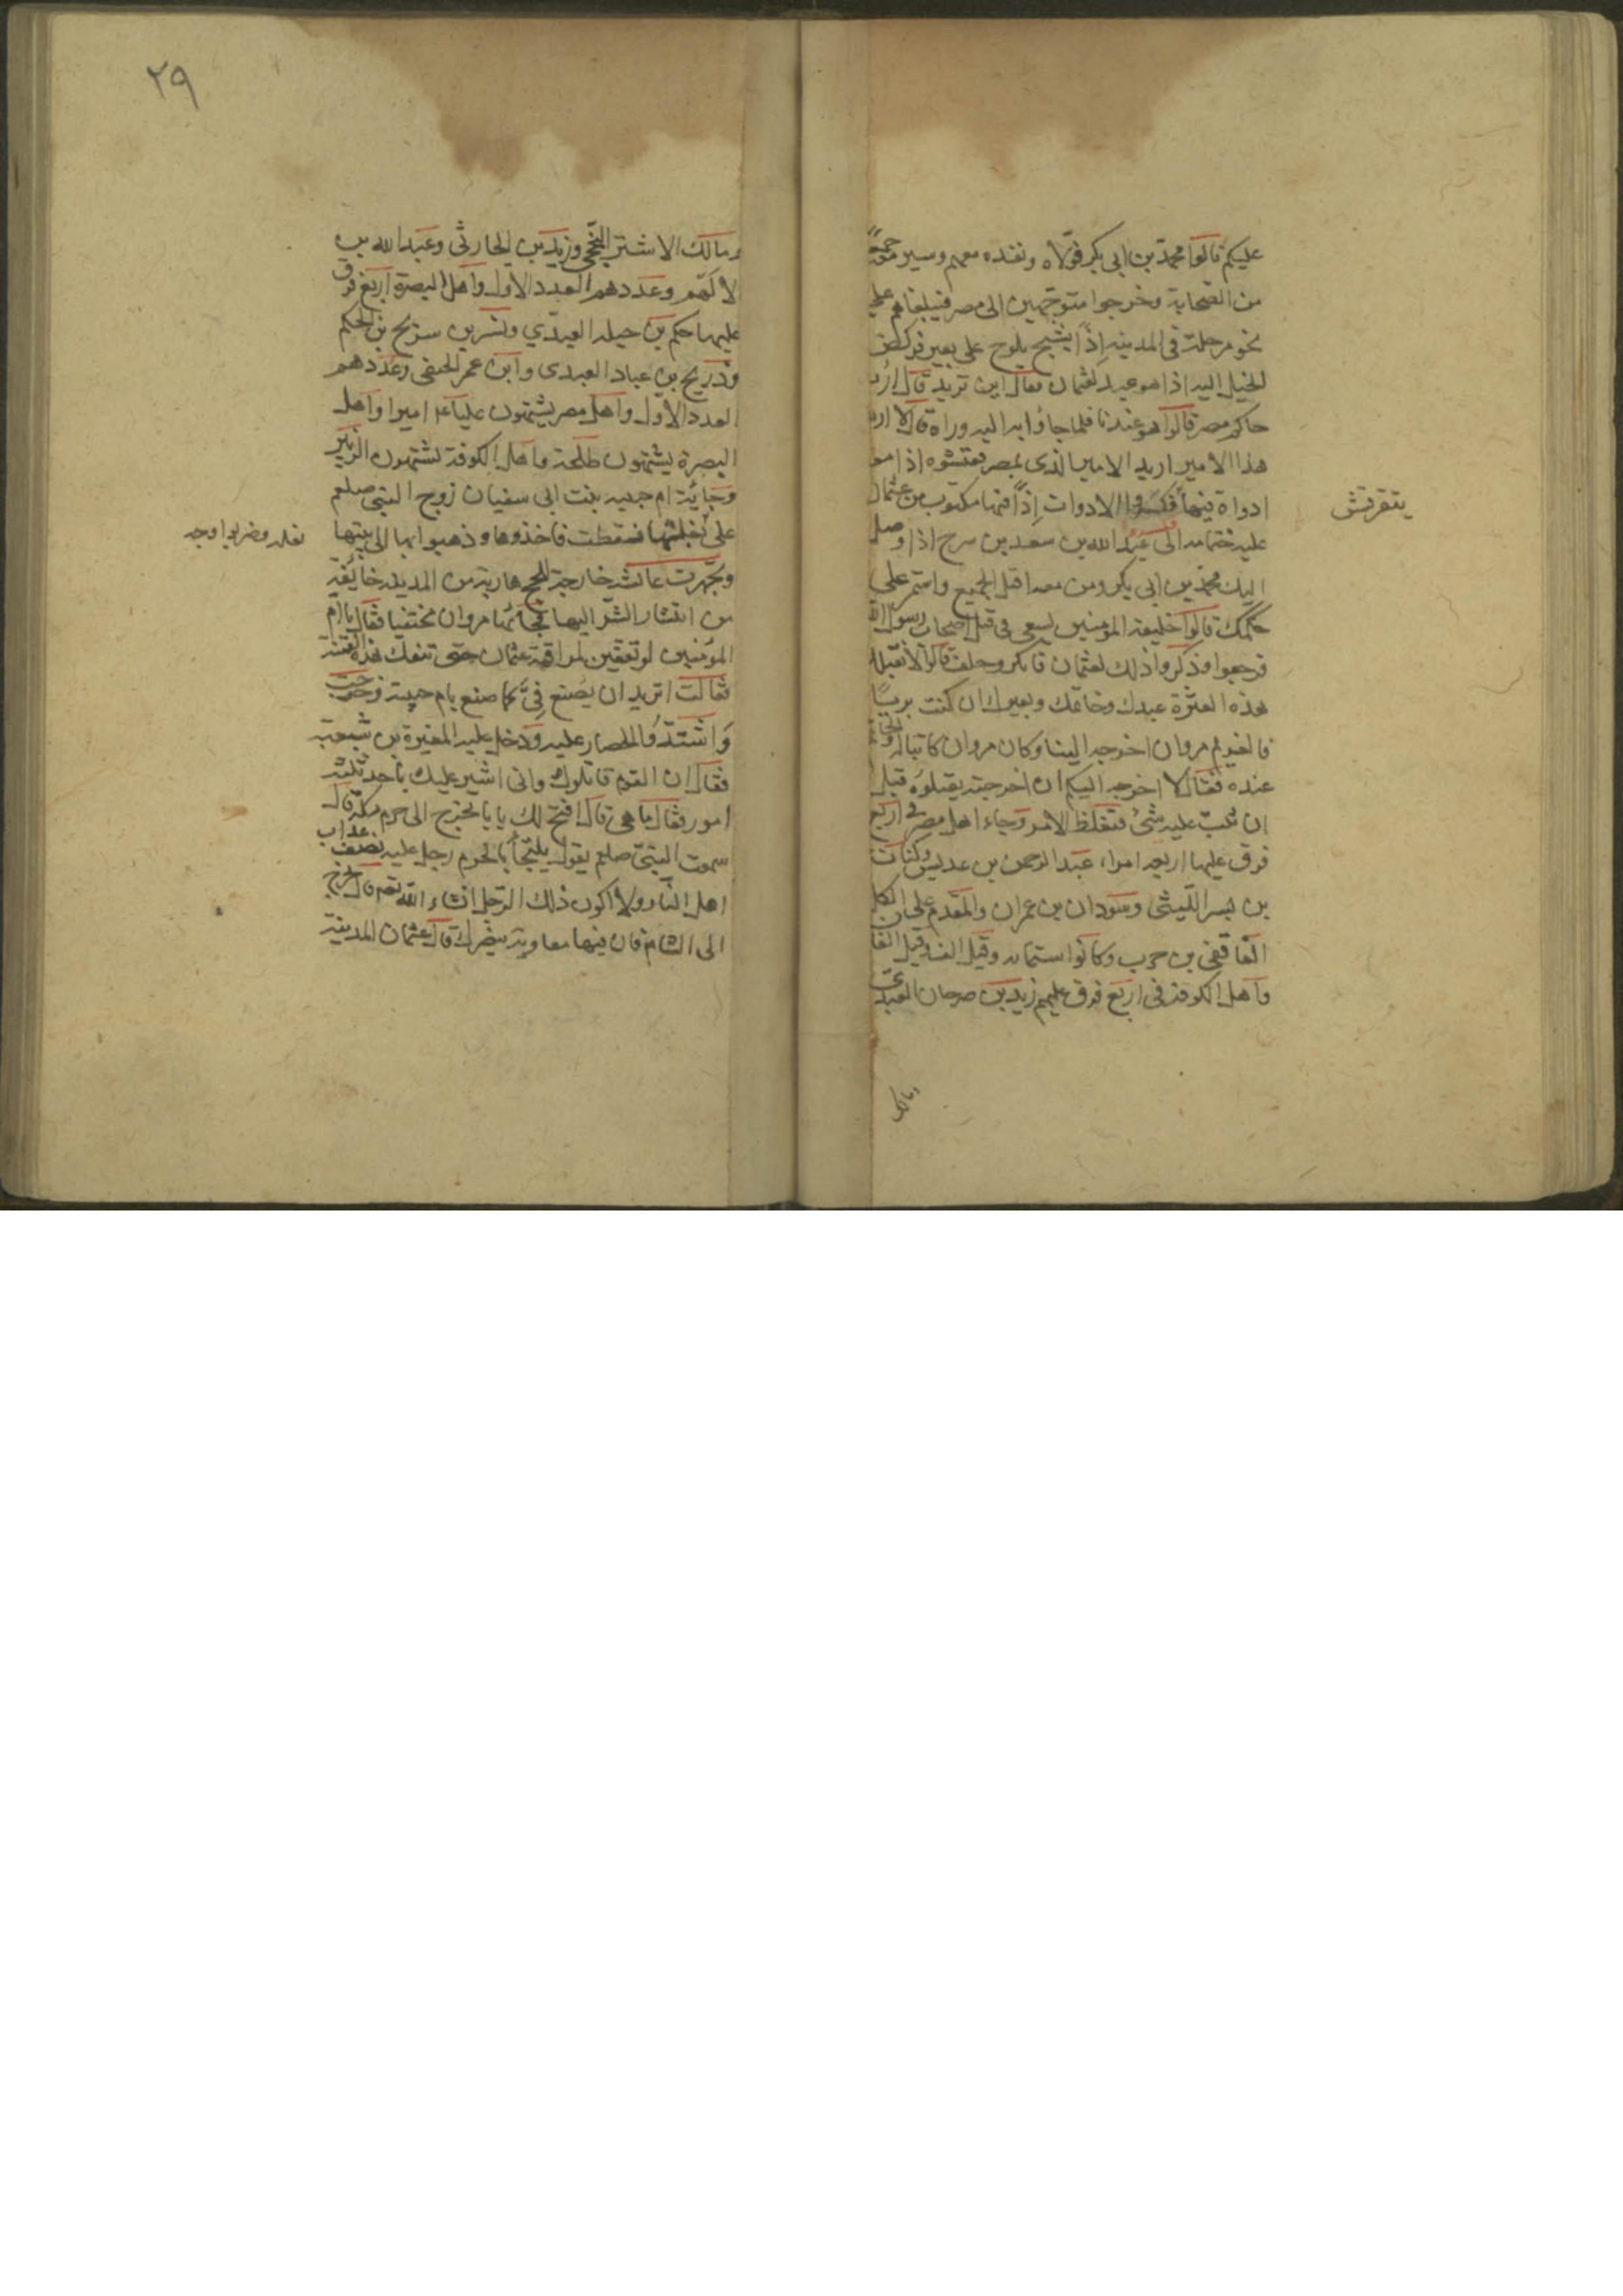 عليكم قالوا محمد بن ابى بكر فولاه ونفذه معهم وسير معهم جمعًا
من الصحابة وخرجوا متوجهين الى مصر فبلغاهم على
نحو مرحلة فى المدينه اذًا بشبح يلوح على بعير فركض
الخيل اليه اذا هو عبد لعثمان فقال اين تريد قال اريد
حاكم مصر قالوا هو عندنا فلما جاؤا به اليه وراه قال لا اريد
هذا الامير اريد الامير الذى بمصر ففتشوه اذا معه
ادواة فيها فكسروا الادوات اذًا فيها مكتوب من عثمان
يتقرقش
عليه ختامه الى عبد الله بن سعد بن سرح اذا وصل
اليك محمد بن ابى بكر ومن معه اقتل الجميع واستمر على
حكمك قالوا خليفة المؤمنين يسعى فى قتل اصحاب رسول الله
فرجعوا وذكروا ذلك لعثمان فانكر وحلف قالوا لا نقتلك
هذه العثرة عبدك وخاتمك وبعيرك ان كنت بريئًا
فالغريم مروان اخرجه الينا وكان مروان كاتبا له والخاتم
عنده فقال لا اخرجه اليكم ان اخرجته يقتلوه قبل
ان يثبت عليه شئ فتغلظ الامر وجاء اهل مصر فى اربع
فرق عليها اربعه امراء عبد الرحمن بن عديس وكنانة
بن بسر الليثى وسودان بن عمران والمقدم على الكل
الغافقى بن حرب وكانوا ستمايه وقيل الف وقيل الفان
واهل الكوفه فى اربع فرق عليهم زيد بن صرحان العبدى
٢٩
ومالك الاشتر النخعى وزيد بن الحارثى وعبد الله بن
الاصم وعددهم العدد الاول واهل البصرة اربع فرق
عليها حكم بن جبله العبدي وبشر بن سريح بن الحكم
وذريح بن عباد العبدى وابن عمر الحنفى وعددهم
العدد الاول واهل مصر يشتهون عليا عم اميرا واهل
البصرة يشتهون طلحة واهل الكوفة يشتهون الزبير
وجائة ام حبيبه بنت ابى سفيان زوج النبى صلعم
على بغلتها فسقطت فاخذوها وذهبوا بها الى بيتها
بغله وضربوا وجه
وتجهزت عائشه خارجة للحج هاربة من المدينه خائفة
من انتشار الشر اليها فجائها مروان مختفيا فقال يا ام
المؤمنين لو تعقين لمراقبة عثمان حتى تنفك هذه الفتنة
فقالت اتريد ان يصنع فيَّ كما صنع بام حبيبة وخرجت
واشتد الحصار عليه ودخل عليه المغيرة بن شعبة
فقال ان القوم قاتلوك وانى اشير عليك باحد ثلثه
امور فقال ما هى قال افتح لك بابا تخرج الى حرم مكة قال
سمعت النبى صلعم يقول يلتجأ بالحرم رجل عليه نصف عذاب
اهل النار ولا اكون ذلك الرجل انشاء الله تعم قال اخرج
الى الشام فان فيها معاوية ينصرك قال عثمان المدينة